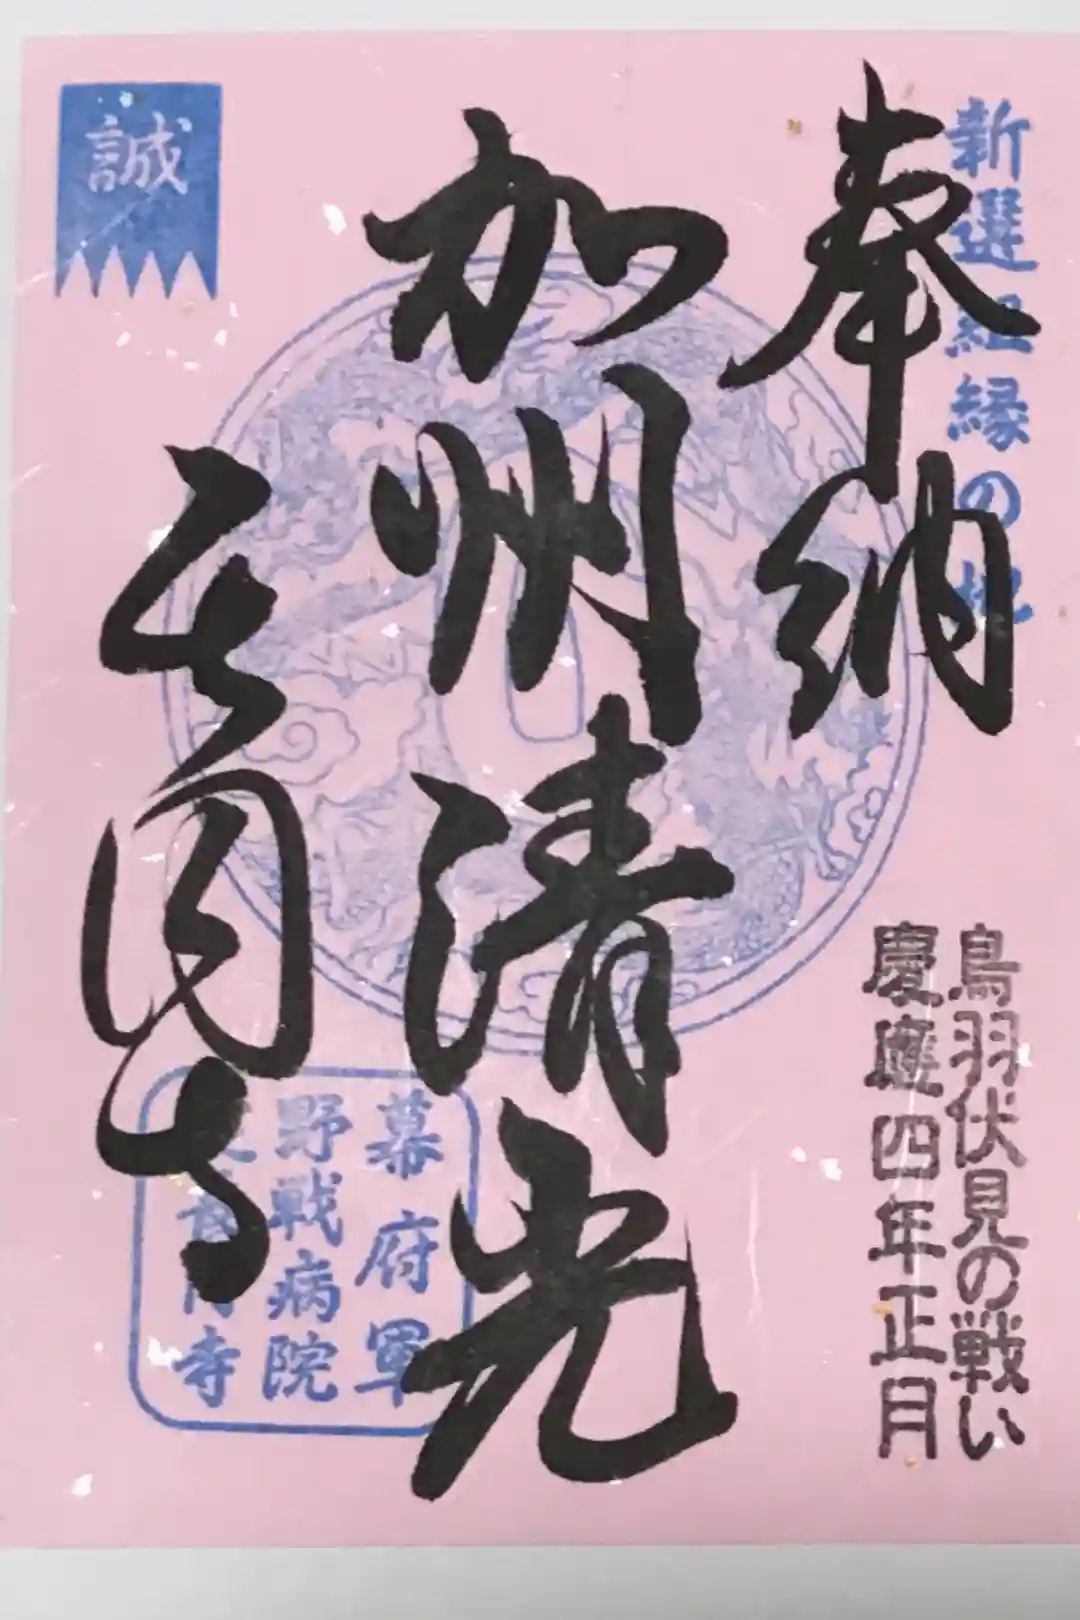 新選組縁の地
奉納
加州清光
長円寺
誠
鳥羽伏見の戦い
慶應四年正月
幕府軍
野戦病院
寺